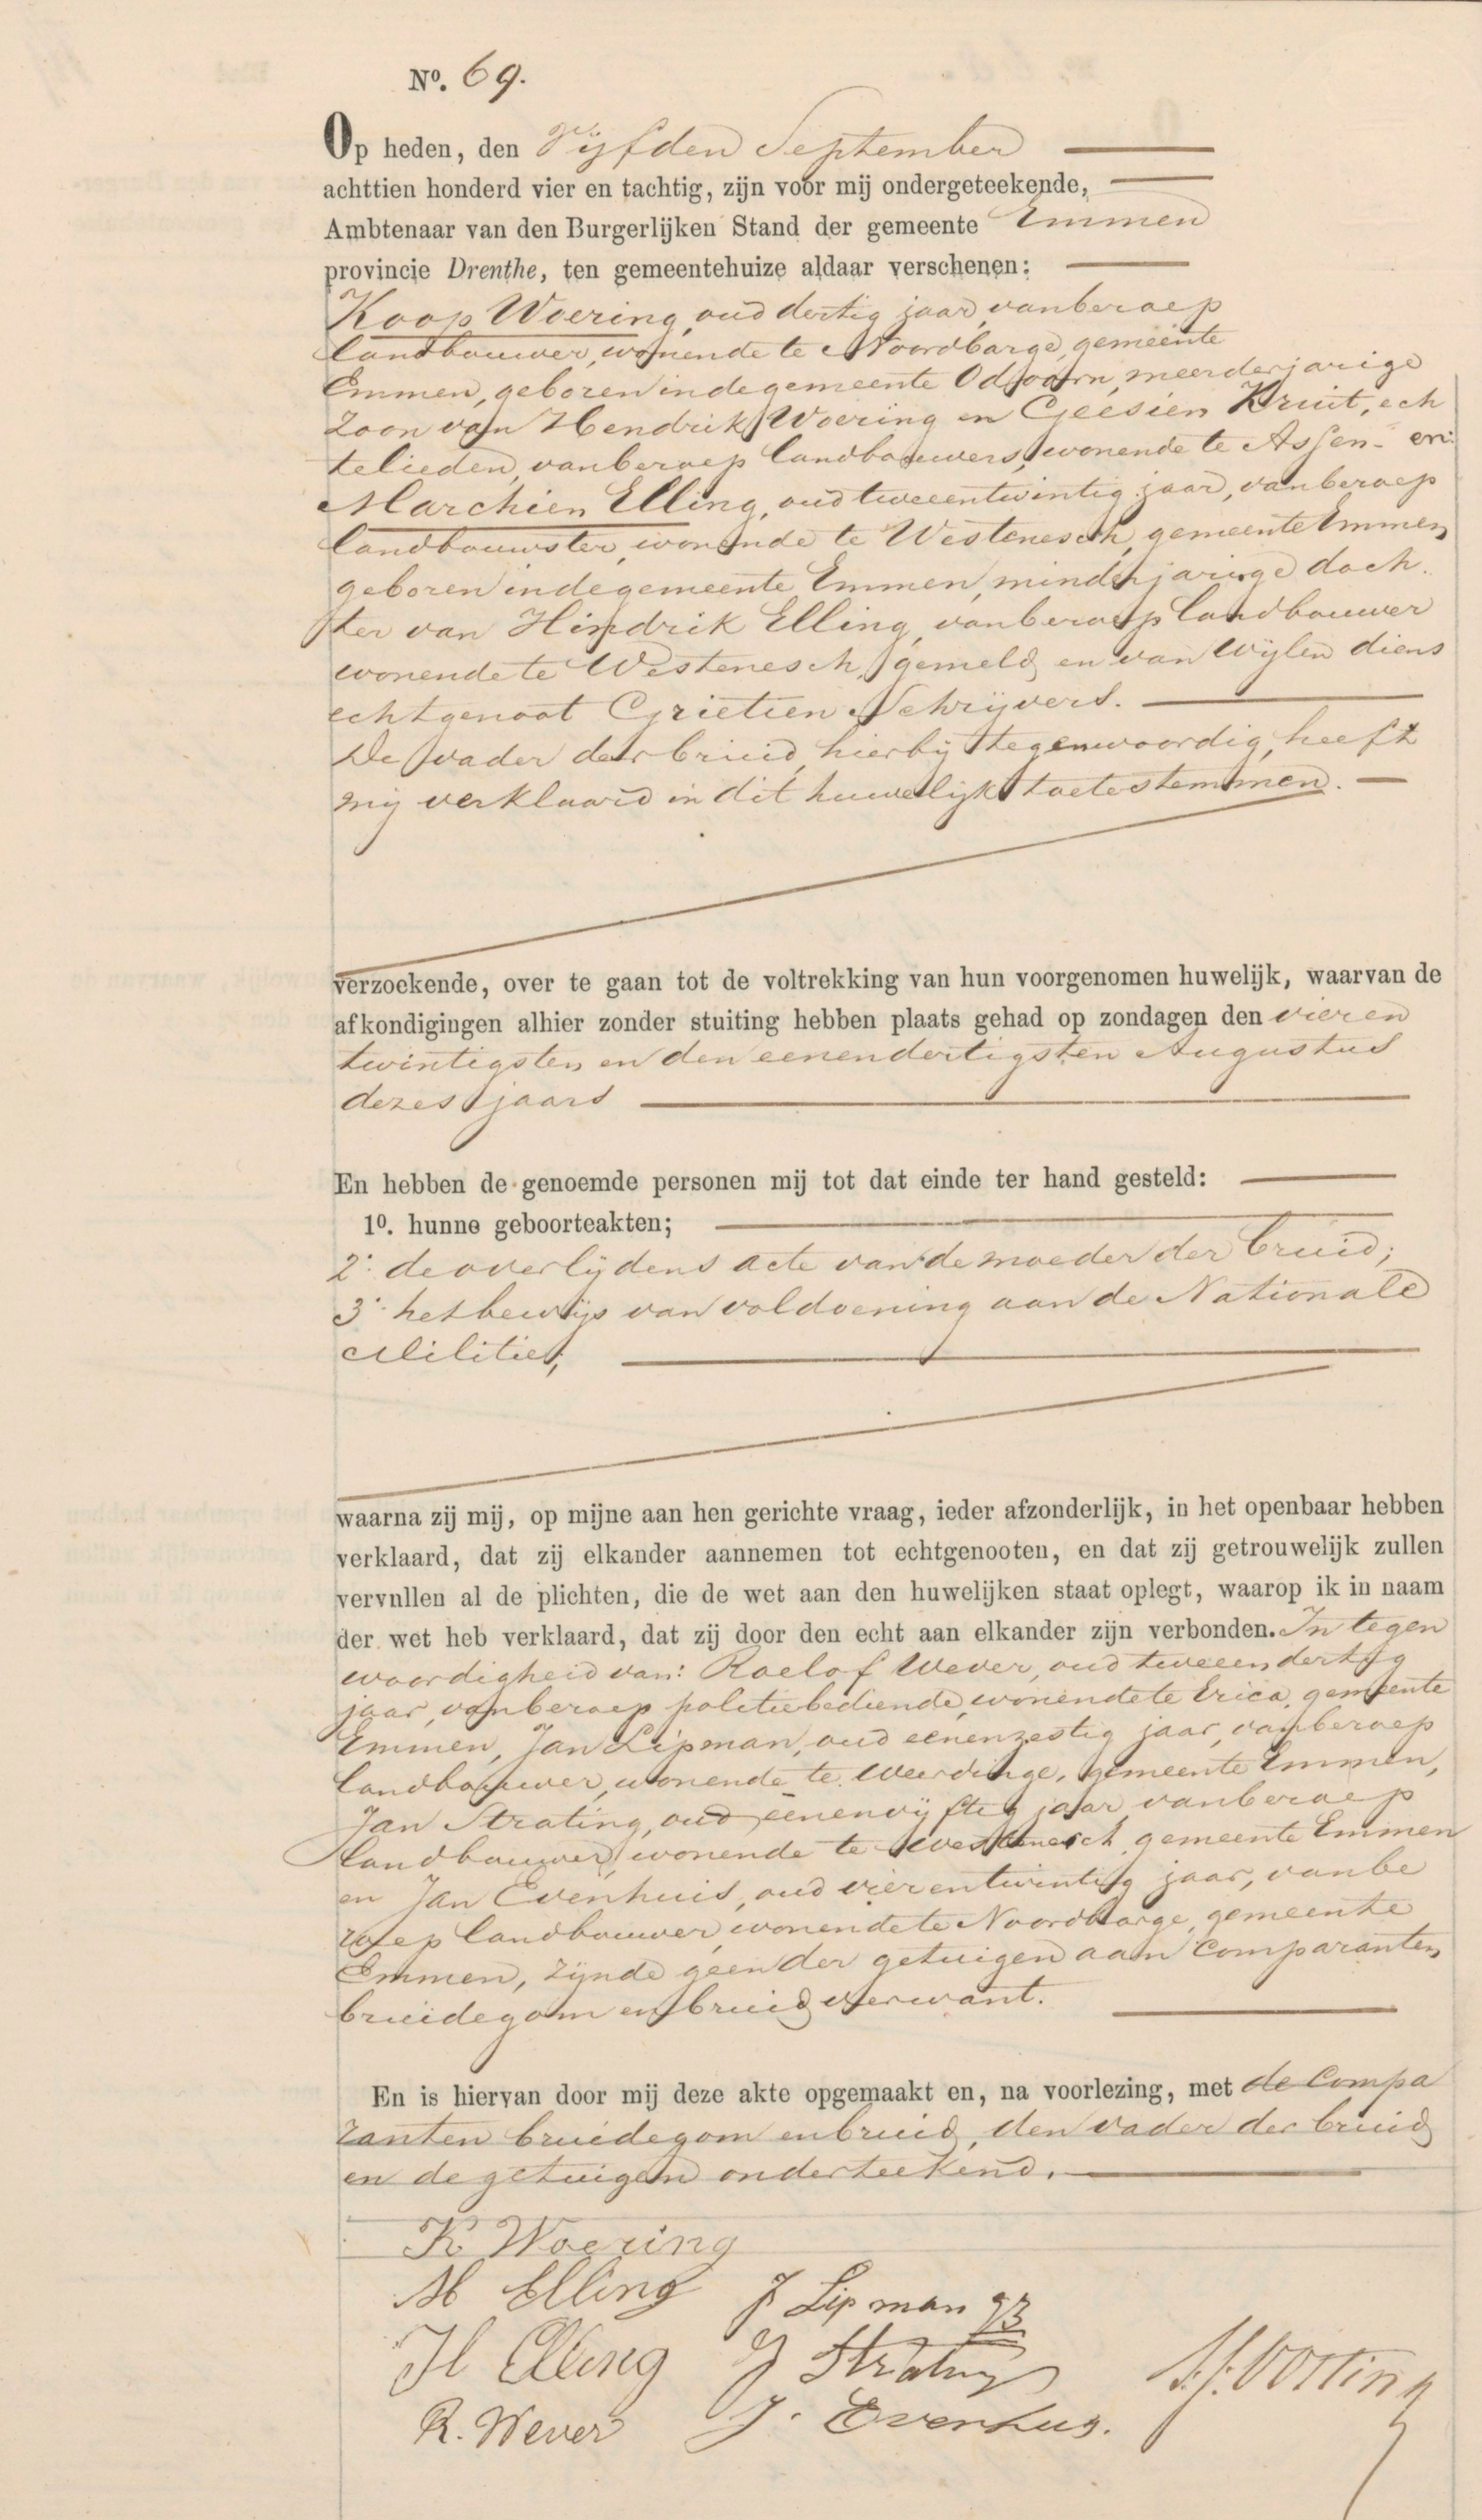 Nº. 69.
Op heden, den Vijfden September
achttien honderd vier en tachtig, zijn voor mij ondergeteekende,
Ambtenaar van den Burgerlijken Stand der gemeente Emmen
provincie Drenthe, ten gemeentehuize aldaar verschenen:
Koop Woering, oud dertig jaar, van beroep
landbouwer, wonende te Noordbarge, gemeente
Emmen, geboren in de gemeente Odoorn, meerderjarige
zoon van Hendrik Woering en Geesien Kruit, ech
telieden, van beroep landbouwers, wonende te Assen - en:
Marchien Elling, oud tweeentwintig jaar, van beroep
landbouwster, wonende te Westenesch, gemeente Emmen,
geboren in de gemeente Emmen, minderjarige doch
ter van Hindrik Elling, van beroep landbouwer
wonende te Westenesch, gemeld, en van wijlen diens
echtgenoot Grietien Schrijvers.
De vader der bruid, hierbij tegenwoordig, heeft
mij verklaard in dit huwelijk toetestemmen.
verzoekende, over te gaan tot de voltrekking van hun voorgenomen huwelijk, waarvan de
afkondigingen alhier zonder stuiting hebben plaats gehad op zondagen den vieren
twintigsten en den eenendertigsten Augustus
dezes jaars
En hebben de genoemde personen mij tot dat einde ter hand gesteld:
1º. hunne geboorteakten;
2º. de overlijdens acte van de moeder der bruid;
3º. het bewijs van voldoening aan de Nationale
Militie;
waarna zij mij, op mijne aan hen gerichte vraag, ieder afzonderlijk, in het openbaar hebben
verklaard, dat zij elkander aannemen tot echtgenooten, en dat zij getrouwelijk zullen
vervullen al de plichten, die de wet aan den huwelijken staat oplegt, waarop ik in naam
der wet heb verklaard, dat zij door den echt aan elkander zijn verbonden. In tegen
woordigheid van: Roelof Wever, oud tweeendertig
jaar, van beroep politiebediende, wonende te Erica, gemeente
Emmen, Jan Lipman, oud eenenzestig jaar, van beroep
landbouwer, wonende te Weerdinge, gemeente Emmen,
Jan Strating, oud eenenvijftig jaar van beroep
landbouwer, wonende te Westenesch, gemeente Emmen
en Jan Evenhuis, oud vierentwintig jaar, van be
roep landbouwer, wonende te Noordbarge, gemeente
Emmen, zijnde geen der getuigen aan comparanten
bruidegom en bruid verwant.
En is hiervan door mij deze akte opgemaakt en, na voorlezing, met de Compa
ranten bruidegom en bruid, den vader der bruid
en de getuigen onderteekend.
K Woering
M Elling J Lipman gz
H Elling J Strating
R. Wever J. Evenhuis.